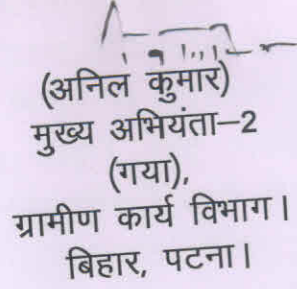 (अनिल कुमार)
मुख्य अभियंता–2
(गया),
ग्रामीण कार्य विभाग।
बिहार, पटना।